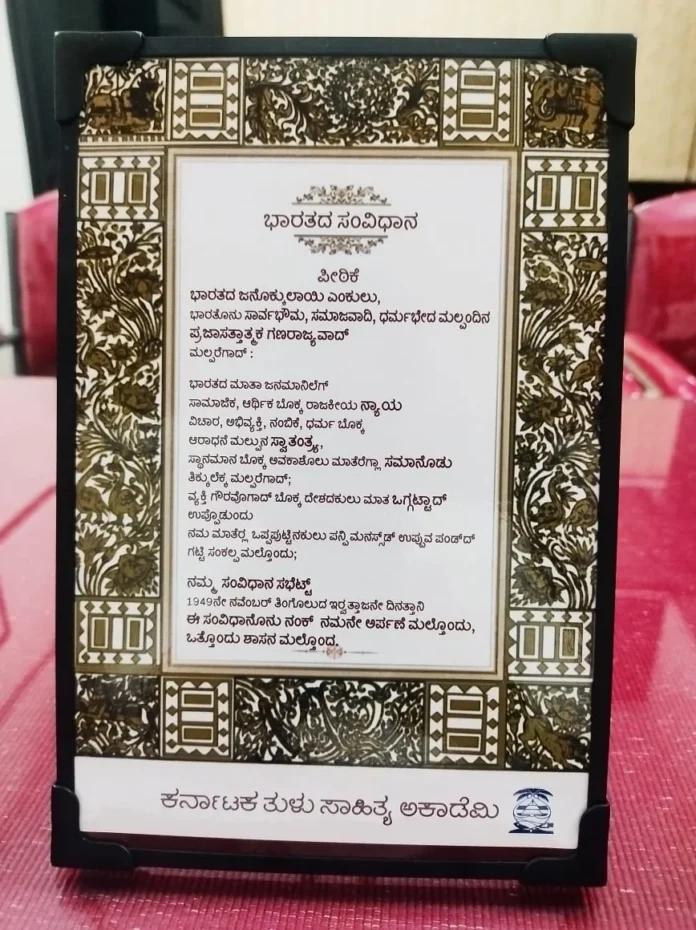 ಭಾರತದ ಸಂವಿಧಾನ
ಪೀಠಿಕೆ
ಭಾರತದ ಜನೊಕ್ಕುಲಾಯಿ ಎಂಕುಲು,
ಭಾರತೊನು ಸಾರ್ವಭೌಮ, ಸಮಾಜವಾದಿ, ಧರ್ಮಭೇದ ಮಲ್ಪಂದಿನ
ಪ್ರಜಾಸತ್ತಾತ್ಮಕ ಗಣರಾಜ್ಯವಾದ್
ಮಲ್ಪರೆಗಾದ್ :
ಭಾರತದ ಮಾತಾ ಜನಮಾನಿಲೆಗ್
ಸಾಮಾಜಿಕ, ಆರ್ಥಿಕ ಬೊಕ್ಕ ರಾಜಕೀಯ ನ್ಯಾಯ
ವಿಚಾರ, ಅಭಿವ್ಯಕ್ತಿ, ನಂಬಿಕೆ, ಧರ್ಮ ಬೊಕ್ಕ
ಆರಾಧನೆ ಮಲ್ಪುನ ಸ್ವಾತಂತ್ರ್ಯ,
ಸ್ಥಾನಮಾನ ಬೊಕ್ಕ ಅವಕಾಶೊಲು ಮಾತೆರೆಗ್ಲಾ ಸಮಾನೊಡು
ತಿಕ್ಕುಲೆಕ್ಕ ಮಲ್ಪರೆಗಾದ್;
ವ್ಯಕ್ತಿ ಗೌರವೊಗಾದ್ ಬೊಕ್ಕ ದೇಶದಕುಲು ಮಾತ ಒಗ್ಗಟ್ಟಾದ್
ಉಪ್ಪೊಡುಂದು
ನಮ ಮಾತೆರ್ಲ ಒಪ್ಪಪುಟ್ಟಿನಕುಲು ಪನ್ಪಿ ಮನಸ್ಸ್‌ಡ್ ಉಪ್ಪುವ ಪಂಡ್‌ದ್
ಗಟ್ಟಿ ಸಂಕಲ್ಪ ಮಲ್ತೊಂದು;
ನಮ್ಮ ಸಂವಿಧಾನ ಸಭೆಟ್ಟ್
1949ನೇ ನವೆಂಬರ್ ತಿಂಗೊಲುದ ಇರ್ವತ್ತಾಜನೇ ದಿನತ್ತಾನಿ
ಈ ಸಂವಿಧಾನೊನು ನಂಕ್ ನಮನೇ ಅರ್ಪಣೆ ಮಲ್ತೊಂದು,
ಒತ್ತೊಂದು ಶಾಸನ ಮಲ್ತೊಂದ.
ಕರ್ನಾಟಕ ತುಳು ಸಾಹಿತ್ಯ ಅಕಾಡೆಮಿ